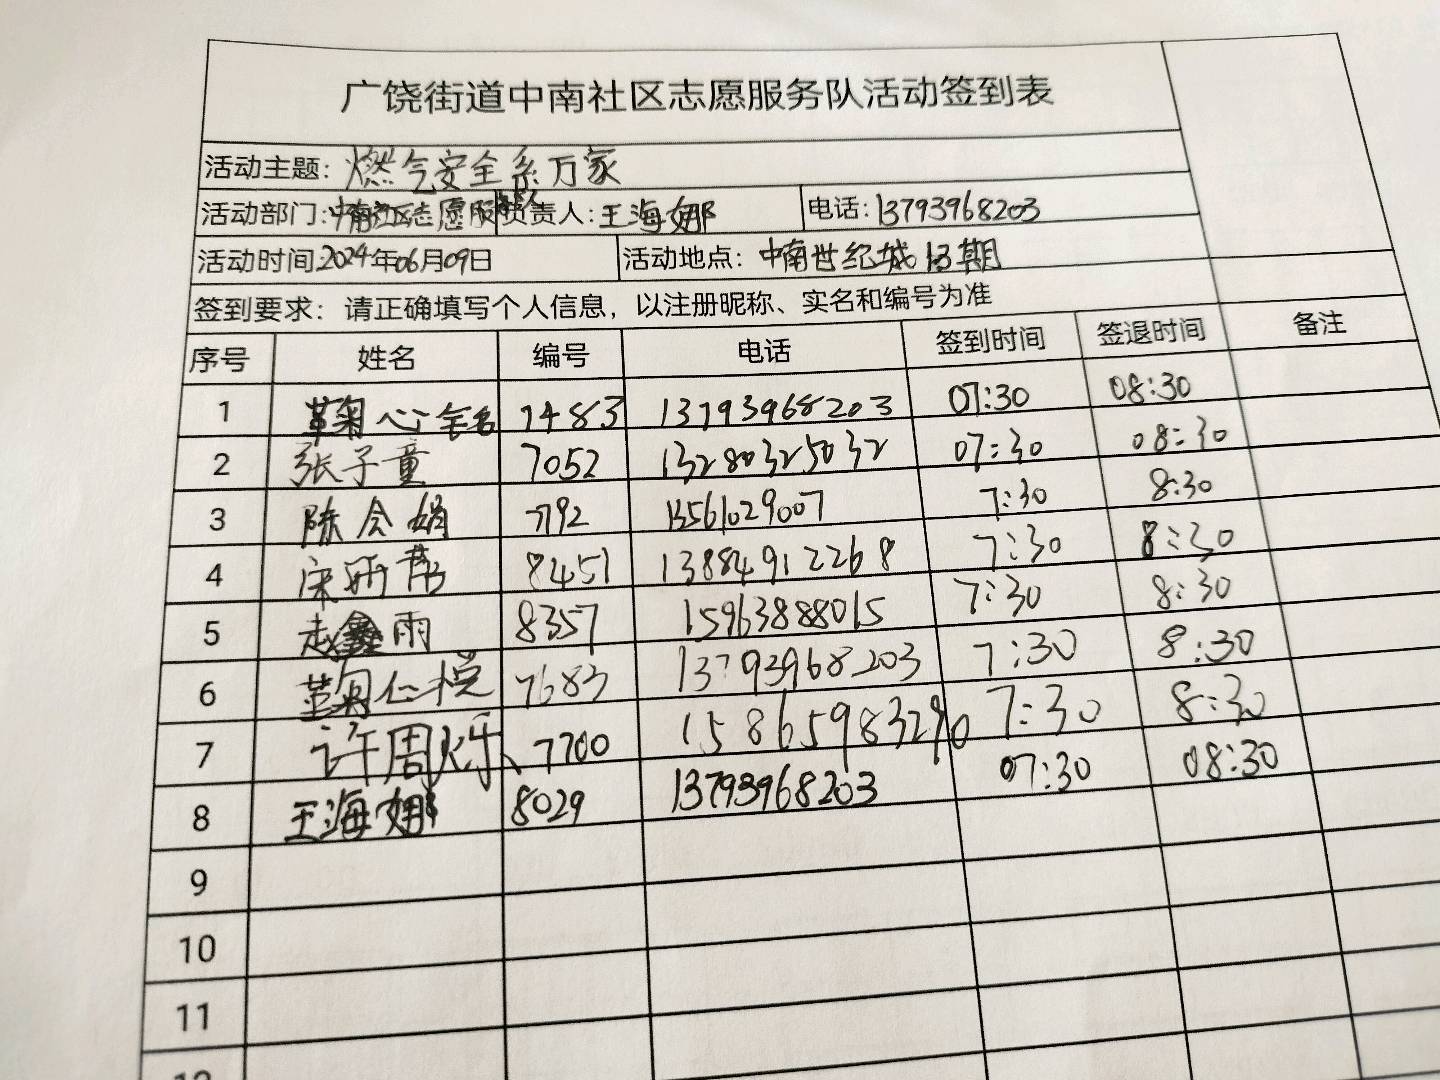 广饶街道中南社区志愿服务队活动签到表
活动主题：燃气安全系万家
活动部门：中南社区志愿服务队 负责人：王海娜 电话：13793968203
活动时间：2024年06月09日 活动地点：中南世纪城13期
签到要求：请正确填写个人信息，以注册昵称、实名和编号为准
序号 姓名 编号 电话 签到时间 签退时间 备注
1 鞠心 7483 13793968203 07:30 08:30
2 张子童 7052 13280325032 07:30 08:30
3 陈令娟 7792 13561029007 7:30 8:30
4 宋 8451 13884912268 7:30 8:30
5 赵鑫雨 8357 15963888015 7:30 8:30
6 鞠仁悦 7683 13793968203 7:30 8:30
7 许周乐 7700 15865983290 7:30 8:30
8 王海娜 8029 13793968203 07:30 08:30
9
10
11
12